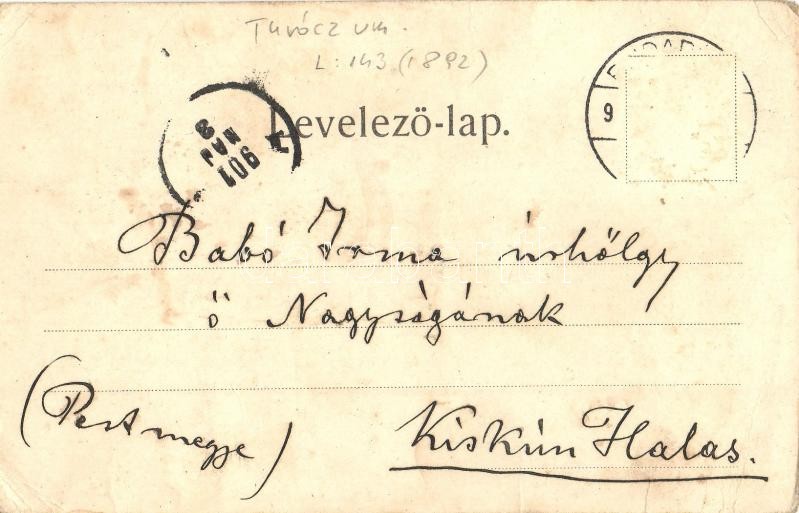 Turócz vm.
L: 143 (1892)
Levelező-lap.
901
MAJ
3
9
Babó Irma úrhölgy
ő Nagyságának
(Pest megye)
Kiskún Halas.